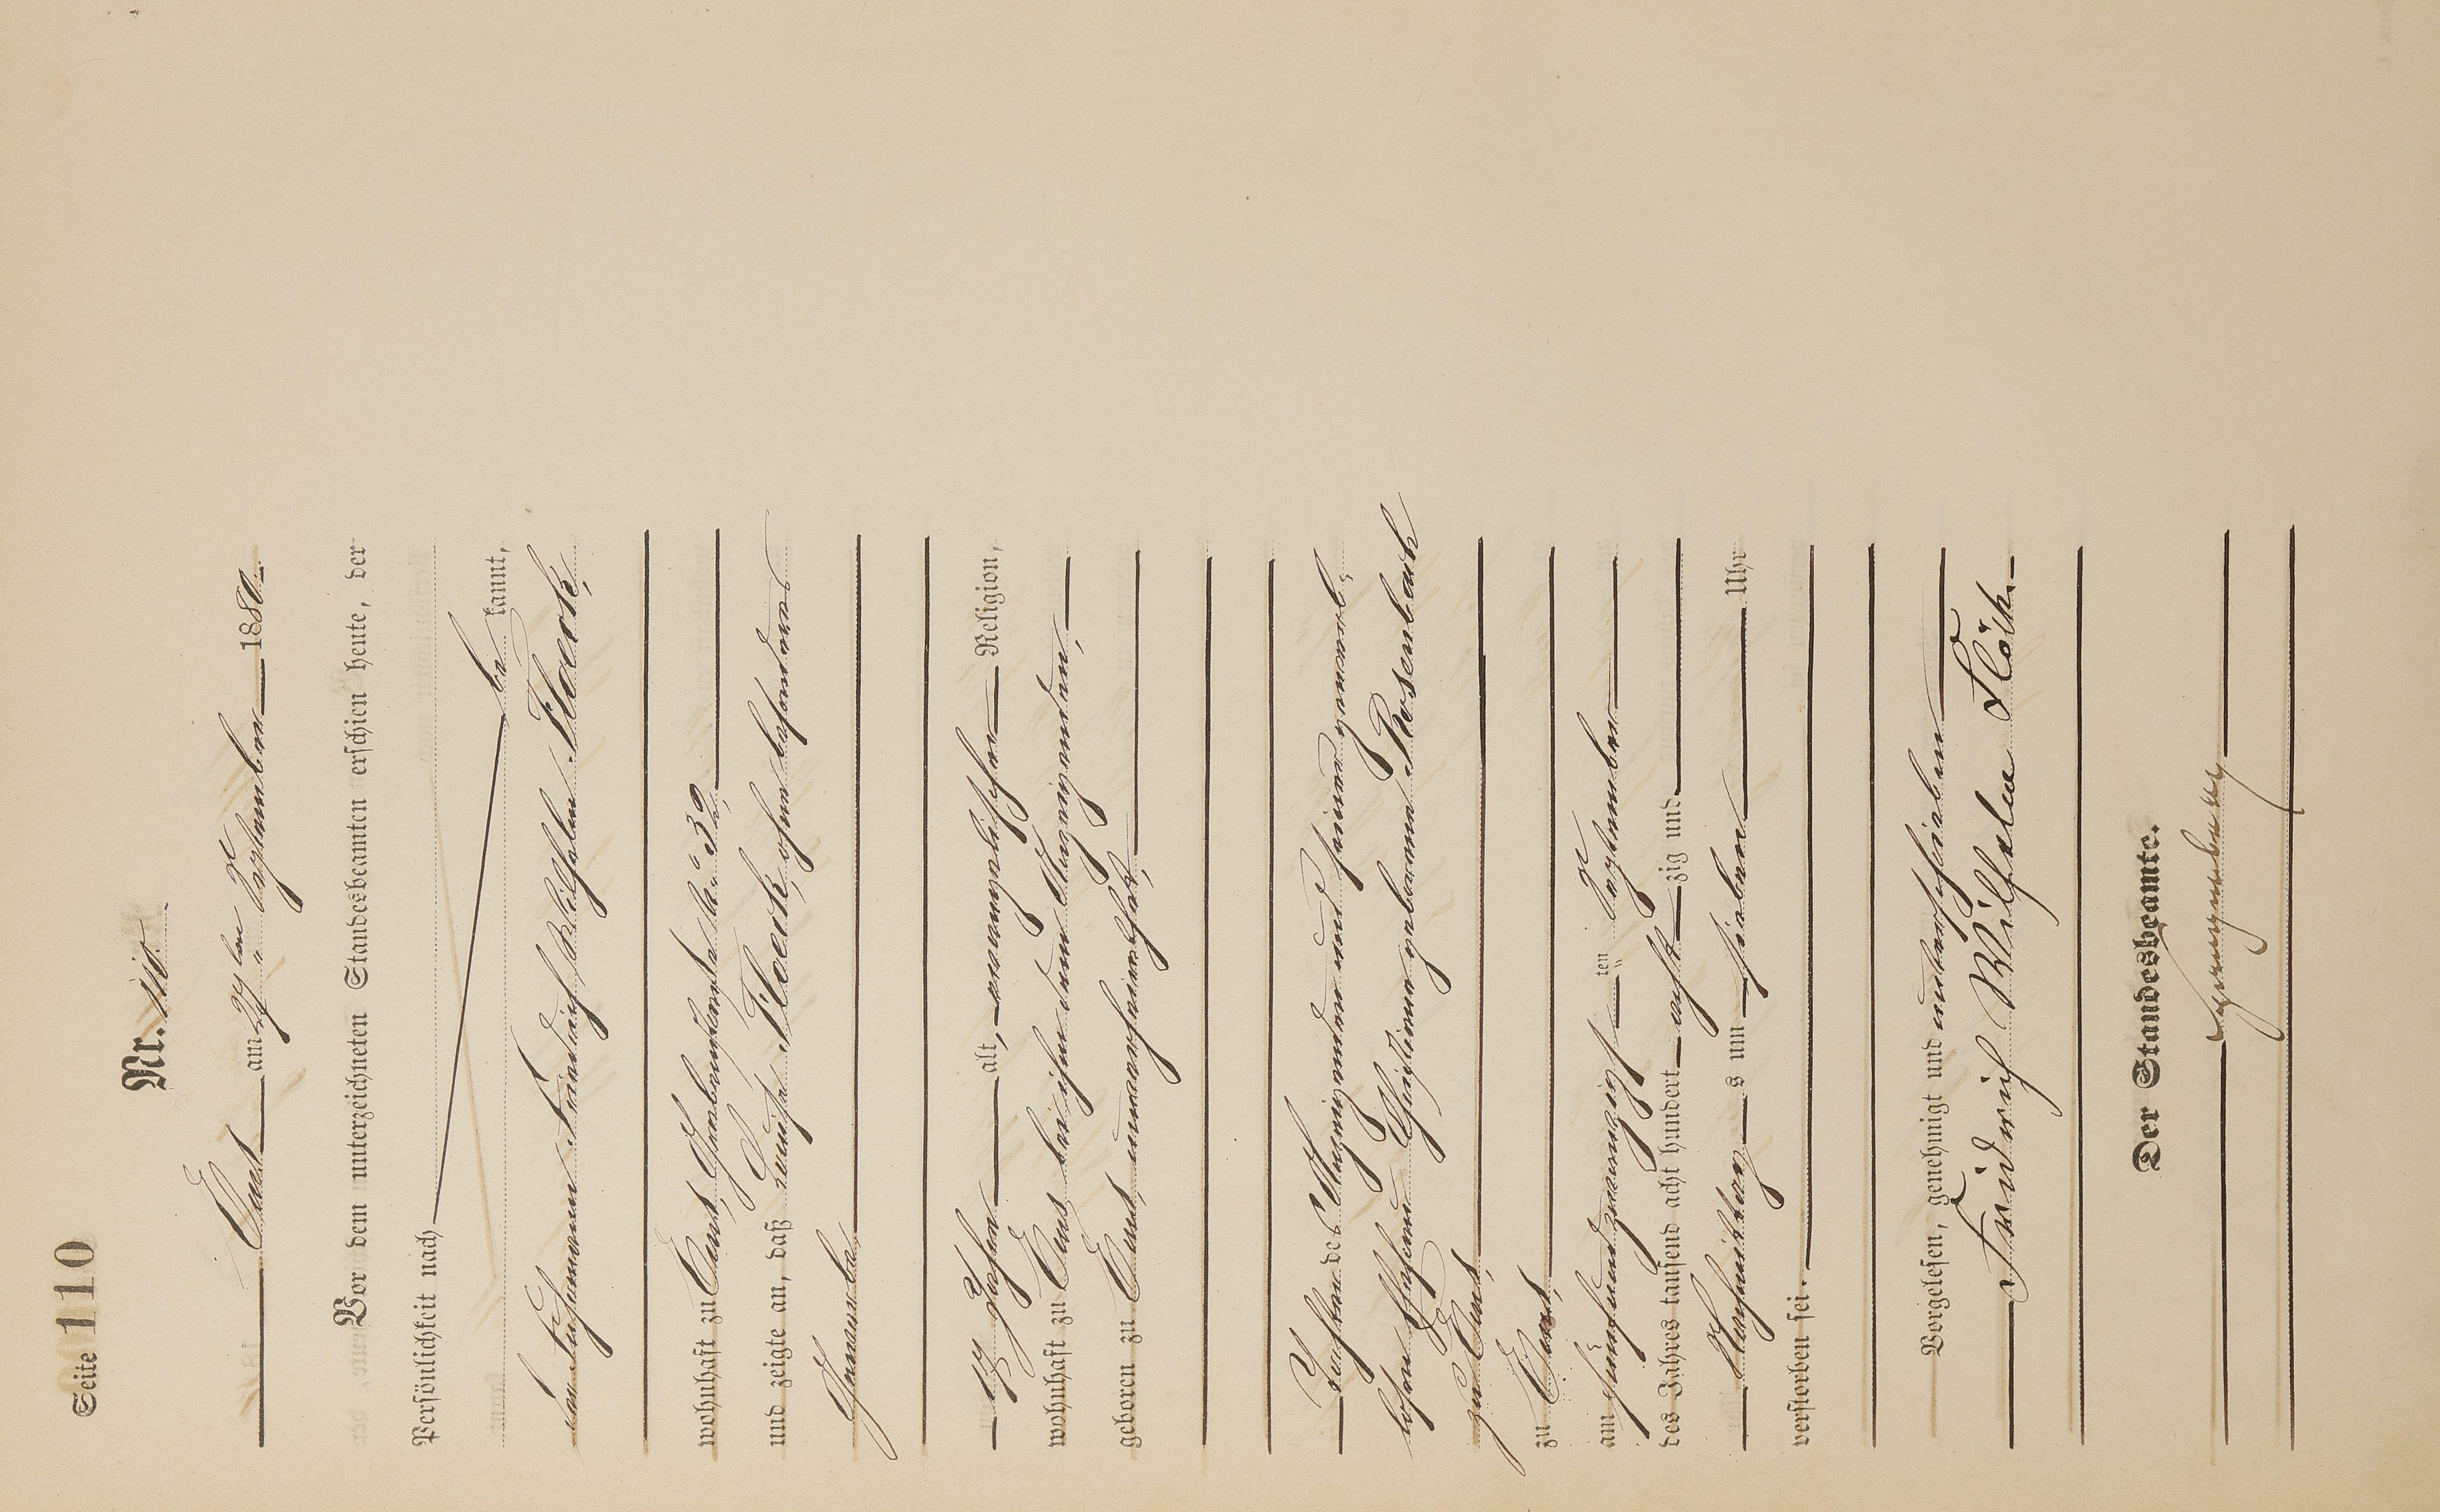 Seite 110
Nr. 110.
Ems am 27ten September 1880.
Vor dem unterzeichneten Standesbeamten erschien heute, der
Persönlichkeit nach
be kannt,
der Fuhrmann Friedrich Wilhelm Floeck,
wohnhaft zu Ems, Grabenstraße No. 32,
und zeigte an, daß Louise Floeck, ohne besonderes
Gewerbe,
17 Jahre alt, evangelischer Religion,
wohnhaft zu Ems bei ihm dem Anzeigenden,
geboren zu Ems, unverheirathet,
Tochter des Anzeigenden und seiner gewerb-
losen Ehefrau Christine geborene Rosenbach
zu Ems,
zu Ems,
am fünfundzwanzigsten September
des Jahres tausend acht hundert achtzig und
Nachmittags um sieben Uhr
verstorben sei.
Vorgelesen, genehmigt und unterschrieben
Friedrich Wilhelm Flöck.
Der Standesbeamte.